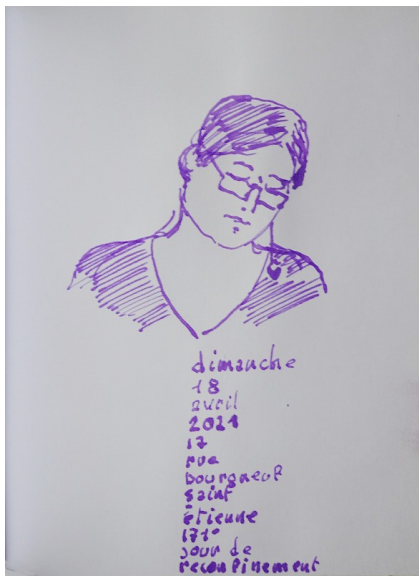 dimanche
18
avril
2021
17
rue
bourgneuf
saint
étienne
171°
jour de
reconfinement